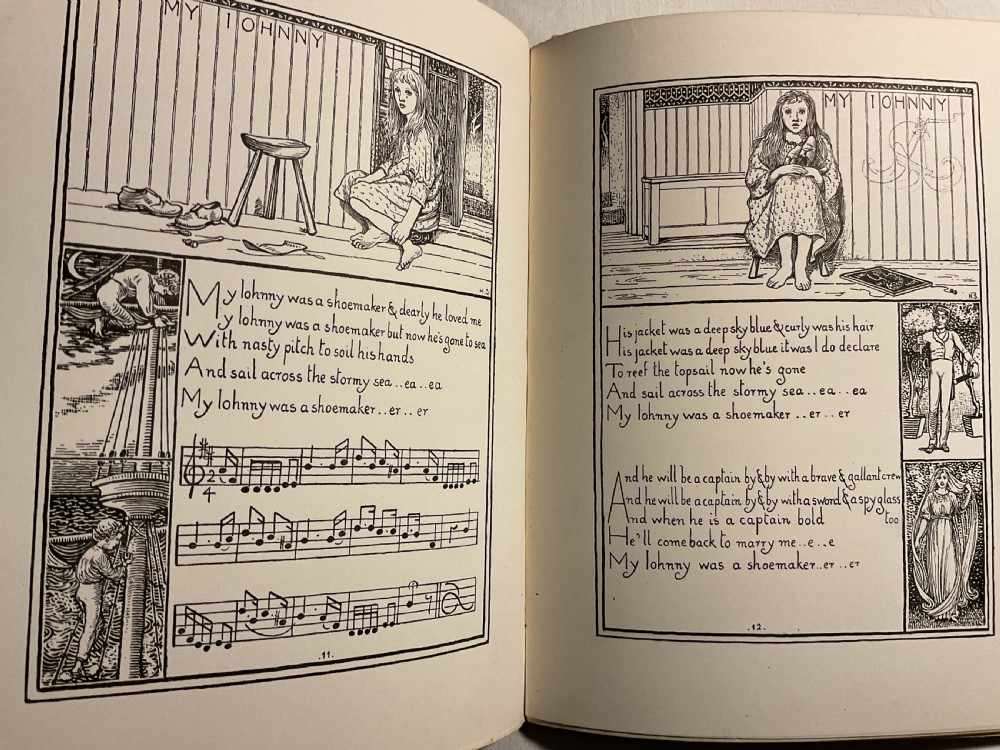 MY IOHNNY
H.B.
My Iohnny was a shoemaker & dearly he loved me
My Iohnny was a shoemaker but now he's gone to sea
With nasty pitch to soil his hands
And sail across the stormy sea..ea..ea
My Iohnny was a shoemaker..er..er
2
4
.11.
MY IOHNNY
H.B.
His jacket was a deep sky blue & curly was his hair
His jacket was a deep sky blue it was I do declare
To reef the topsail now he's gone
And sail across the stormy sea...ea..ea
My Iohnny was a shoemaker ..er..er
And he will be a captain by & by with a brave & gallant crew
And he will be a captain by & by with a sword & a spy glass
too
And when he is a captain bold
He'll come back to marry me..e..e
My Iohnny was a shoemaker..er..er
.12.